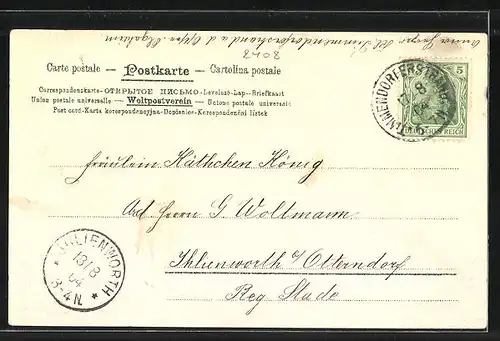 2408
Carte postale — Postkarte — Cartolina postale
Correspondenzkarte - ОТКРЫТОЕ ПИСЬМО - Levelező-Lap - Briefkaart
Union postale universelle — Weltpostverein — Unione postale universale
Post card - Karta korespondencyjna - Dopisnice - Korespondenční lístek
5
DEUTSCHES REICH
TIMMENDORFERSTRAND
Fräulein Käthchen König
Adr Herrn G. Woltmann
Ihlienworth b/ Otterndorf
Reg Stade
IHLIENWORTH
13/8
04
3-4N.